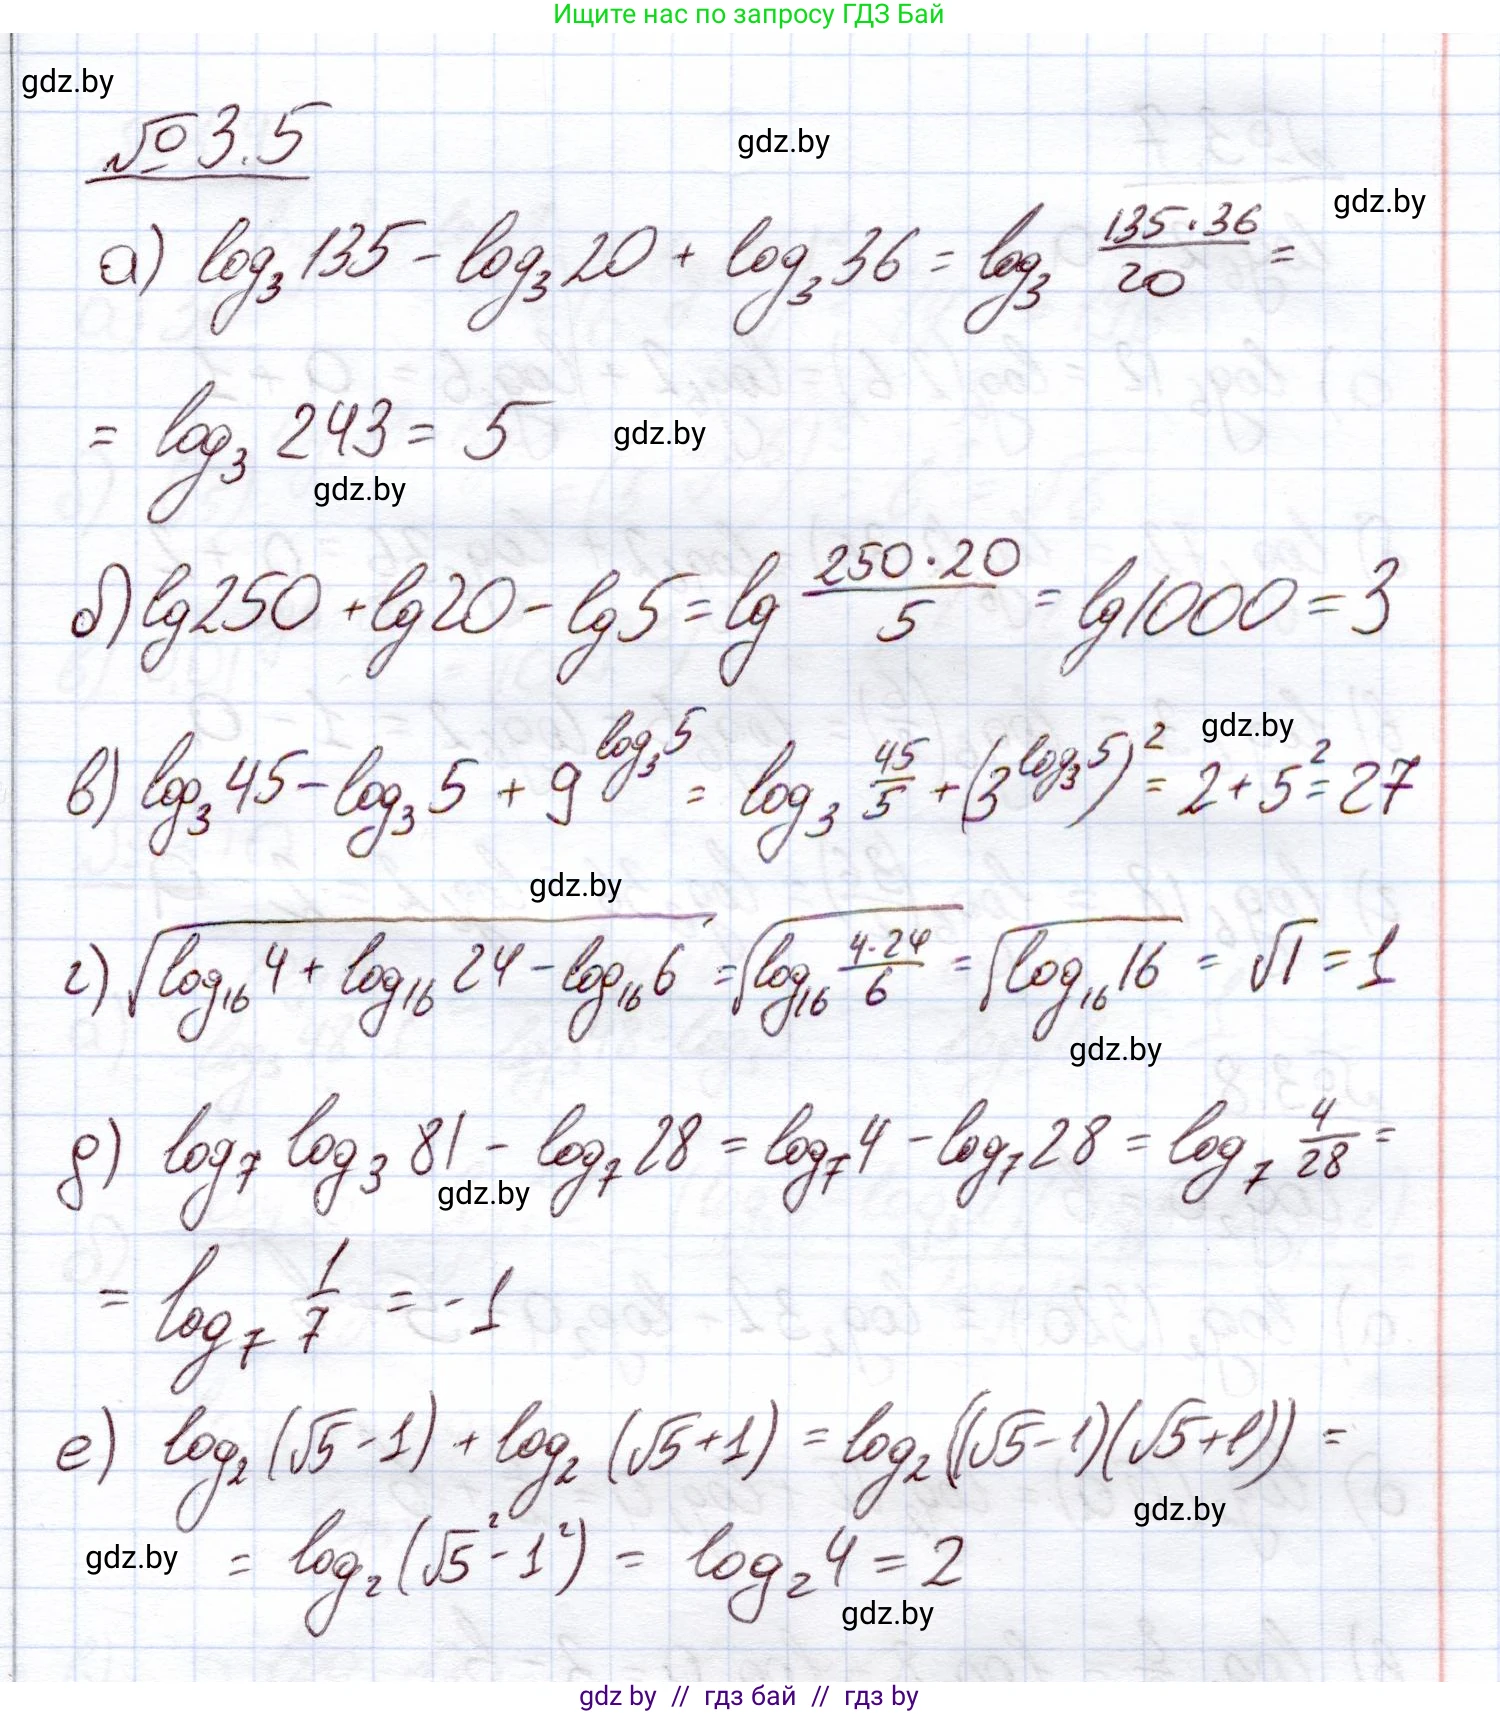 Ищите нас по запросу ГДЗ Бай
gdz.by
№3.5
gdz.by
gdz.by
а) log₃ 135 - log₃ 20 + log₃ 36 = log₃ (135·36)/20 =
= log₃ 243 = 5
gdz.by
gdz.by
б) lg 250 + lg 20 - lg 5 = lg (250·20)/5 = lg 1000 = 3
gdz.by
в) log₃ 45 - log₃ 5 + 9^(log₃ 5) = log₃ 45/5 + (3^(log₃ 5))² = 2 + 5² = 27
gdz.by
г) √(log₁₆ 4 + log₁₆ 24 - log₁₆ 6) = √(log₁₆ (4·24)/6) = √(log₁₆ 16) = √1 = 1
gdz.by
д) log₇ log₃ 81 - log₇ 28 = log₇ 4 - log₇ 28 = log₇ 4/28 =
gdz.by
= log₇ 1/7 = -1
е) log₂ (√5 - 1) + log₂ (√5 + 1) = log₂ ((√5 - 1)(√5 + 1)) =
gdz.by
gdz.by
= log₂ (√5² - 1²) = log₂ 4 = 2
gdz.by
gdz by // гдз бай // гдз by